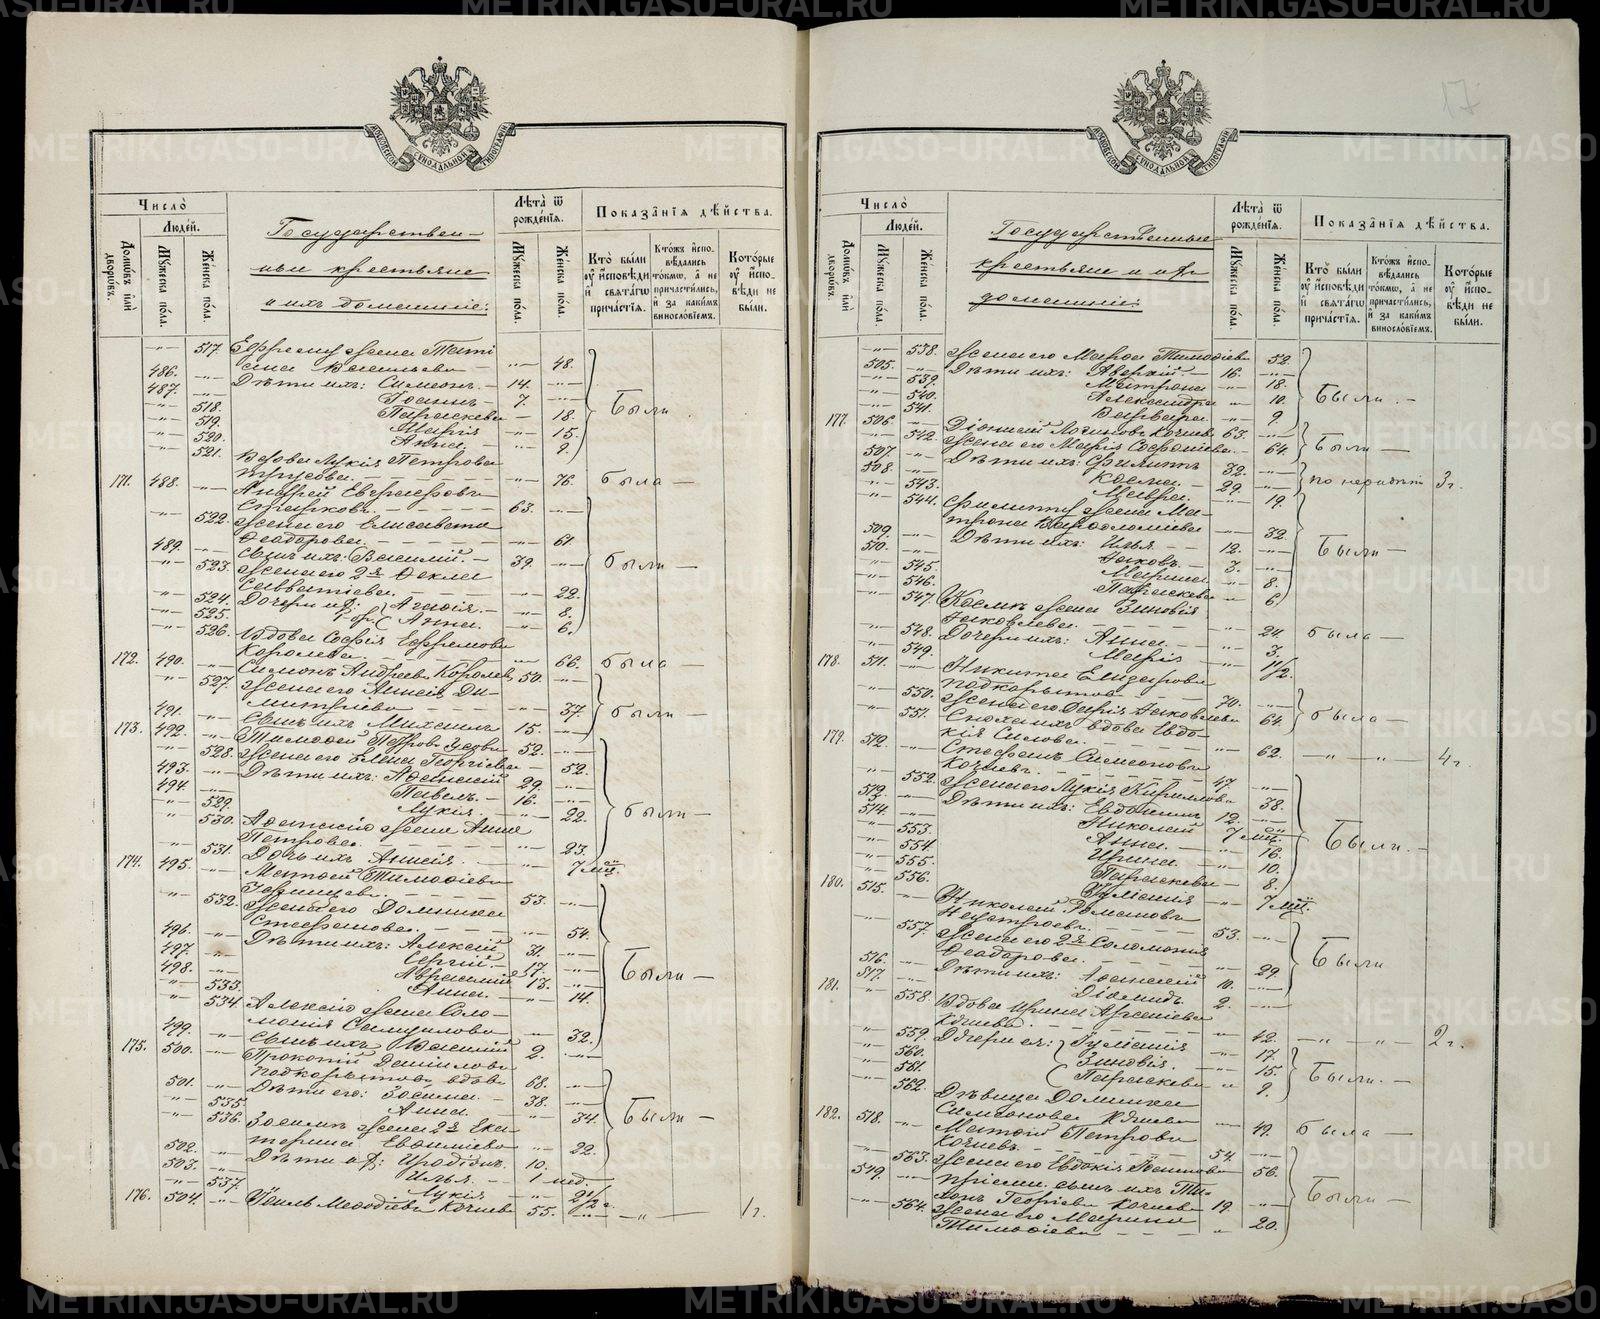 METRIKI.GASO-URAL.RU
МОСКОВСКОЙ СѴНОДАЛЬНОЙ ТИПОГРАФІИ
Число
Людей.
Домовъ или дворовъ.
Мужеска пола.
Женска пола.
Государствен-
ныи крестьяне
и ихъ домашніе:
Лѣта ѿ рожденія.
Мужеска пола.
Женска пола.
Показанія дѣйства.
Кто были оу исповѣди и святагѡ причастія.
Ктожъ исповѣдались токмѡ, а не причастились, и за какимъ винословіемъ.
Которые оу исповѣди не были.
-"- 517. Ефрему жена Тати
ана Васильева -"- 48.
486. -"- Дѣти ихъ: Симеонъ. 14. -"-
487. -"- Іоаннъ 7. -"-
-"- 518. Параскева -"- 18. Были
-"- 519. Марія -"- 15.
-"- 520. Анна -"- 9.
-"- 521. Вдова Лукія Петрова
-"- 76. была
171. 488. -"- Андрей
63. -"-
-"- 522. жена его Елисавета
Ѳеодорова -"- 61
489. -"- Сынъ ихъ: Василий. 39. -"- были
-"- 523. жена его 2я Ѳекла
Савватіева. -"- 22.
-"- 524. Дочери Агафія. -"- 8.
-"- 525. Анна. -"- 6.
-"- 526. Вдова Софія Ефремова
Королева -"- 66. была
172. 490. -"- Симонъ Андреевъ Королевъ 50. -"-
-"- 527. жена его Анисія Ди-
митріева -"- 37. были
491. -"- Сынъ ихъ Михаилъ 15. -"-
173. 492. -"- Тимофей Петровъ 52. -"-
-"- 528. жена его Елена Георгіева -"- 52.
493. -"- Дѣти ихъ: Аѳанасій 29. -"-
494. -"- Павелъ. 16. -"-
-"- 529. Лукія. -"- 22. были
-"- 530. Аѳанасію жена Анна
Петрова. -"- 23.
-"- 531. Дочь ихъ Анисія. -"- 7 мц.
174. 495. -"- Матѳей Тимофіевъ
53. -"-
-"- 532. жена его Домника
Стефанова. -"- 54.
496. -"- Дѣти ихъ: Алексій 31. -"-
497. -"- Сергій. 17. -"- Были
498. -"- 13. -"-
-"- 533. Анна. -"- 14.
-"- 534. Алексію жена Соло-
монія Самуилова -"- 32.
499. -"- Сынъ ихъ Василий 2. -"-
175. 500. -"- Прокопій Даниловъ
Подкорытовъ вдовъ 68. -"-
501. -"- Дѣти его: Зосима 38. -"-
-"- 535. Анна -"- 34. Были
-"- 536. Зосимѣ жена 2я Ека
терина Евфиміева -"- 22.
502. -"- Дѣти Иродіонъ. 10.
503. -"- Илья. 1 нед.
-"- 537. Лукія -"- 2 1/2 г.
176. 504. -"- Меѳодіевъ Кочневъ 55. -"- -"- 1 г.
17
Число
Людей.
Домовъ или дворовъ.
Мужеска пола.
Женска пола.
Государственные
крестьяне и ихъ
домашніи:
Лѣта ѿ рожденія.
Мужеска пола.
Женска пола.
Показанія дѣйства.
Кто были оу исповѣди и святагѡ причастія.
Ктожъ исповѣдались токмѡ, а не причастились, и за какимъ винословіемъ.
Которые оу исповѣди не были.
-"- 538. жена его Марѳа Тимофіева 52.
505. -"- Дѣти ихъ: Аверкій. 16. -"-
-"- 539. Матрона -"- 18.
-"- 540. Александра -"- 10. Были
-"- 541. Варвара -"- 9
177. 506. -"- Діонисій Логиновъ Кочневъ 63. -"-
-"- 542. жена его Марія Софроніева -"- 64. Были
507. -"- Дѣти ихъ: Филиппъ 32. -"- по нерадѣн 3 г.
508. -"- Косма. 29. -"-
-"- 543. Мавра. -"- 19.
-"- 544. Филиппу жена Ма-
трона Варѳоломіева -"- 32.
509. -"- Дѣти ихъ: Илья 12. -"- Были
510. -"- Іаковъ 3. -"-
-"- 545. Марина -"- 8.
-"- 546. Параскева -"- 6
-"- 547. Космѣ жена Зиновія
Іаковлева. -"- 24. была
-"- 548. Дочери ихъ: Анна. -"- 3.
-"- 549. Марія -"- 1 1/2.
178. 511. -"- Никита Елизаровъ
Подкорытовъ 70. -"-
-"- 550. жена его Дарія Іаковлева 64. была
-"- 551. Сноха ихъ вдова Евдо-
кія Силова. -"- 62. -"- -"- 4 г.
179. 512. -"- Стефанъ Симеоновъ
Кочневъ. 47. -"-
-"- 552. жена его Лукія Кириллова -"- 38.
513. -"- Дѣти ихъ: Евдокимъ 12. -"-
514. -"- Николай 7 мц.
-"- 553. Анна. -"- 16. Были.
-"- 554. Ирина -"- 10.
-"- 555. Параскева -"- 8.
-"- 556. Іуліанія -"- 7 мц.
180. 515. -"- Николай Романовъ
53. -"-
-"- 557. жена его 2я Соломонія
Ѳеодорова. -"- 29. Были
516. -"- Дѣти ихъ: Аѳанасій 10. -"-
517. -"- Діомидъ. 2. -"-
181. -"- 558. Вдова Ирина Арсеніева
-"- 42. -"- -"- 2 г.
-"- 559. Дочери ея: Іуліанія -"- 17.
-"- 560. Зиновія. -"- 15. Были.
-"- 561. Параскева -"- 9.
-"- 562. Дѣвица Домника
Симеонова -"- 49. была
182. 518. -"- Матѳій Петровъ
Кочневъ. 54. -"-
-"- 563. жена его Евдокія -"- 56.
519. -"- пріемн. сынъ ихъ Ти-
хонъ Георгіевъ Кочневъ 19. -"- Были
-"- 564. жена его Марина
Тимофіева -"- 20.